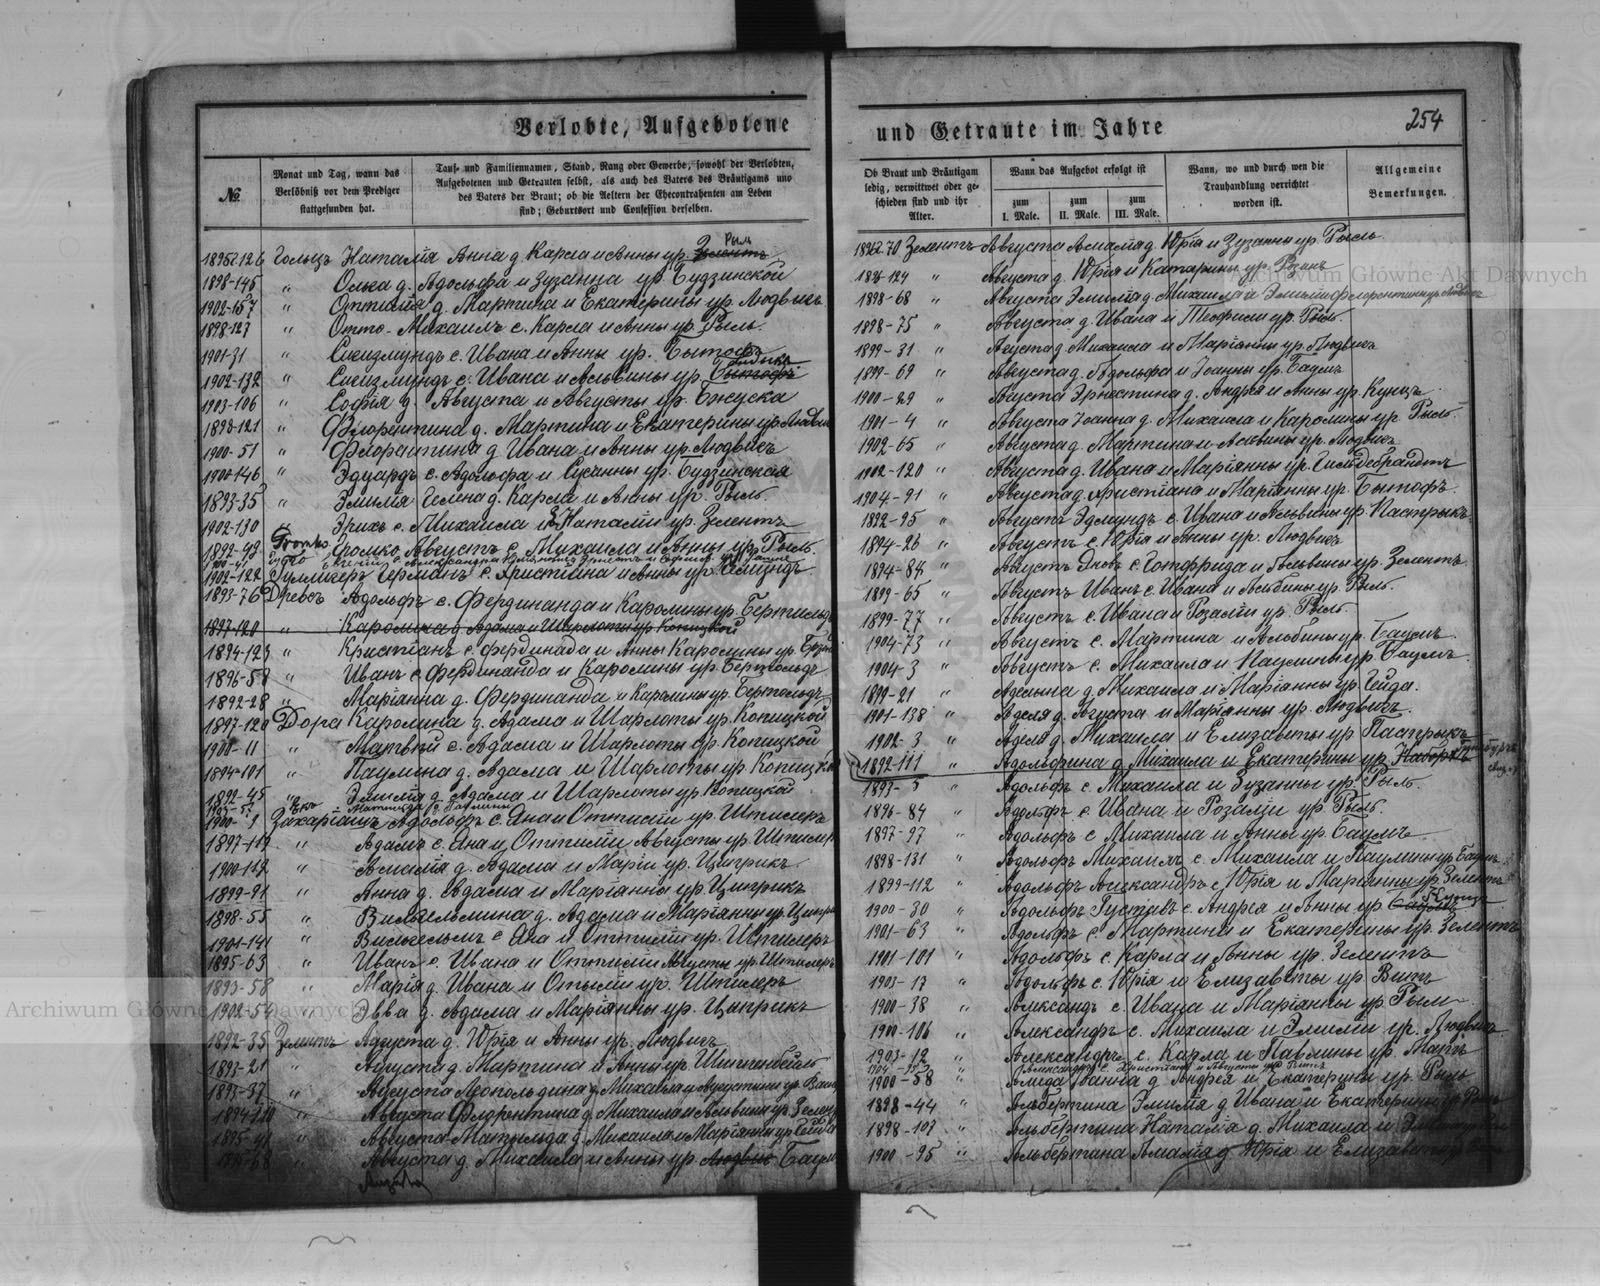 Verlobte, Aufgebotene
№
Monat und Tag, wann das Verlöbniß vor dem Prediger stattgefunden hat.
Tauf- und Familiennamen, Stand, Rang oder Gewerbe, sowohl der Verlobten, Aufgebotenen und Getrauten selbst, als auch des Vaters des Bräutigams und des Vaters der Braut; ob die Aeltern der Ehecontrahenten am Leben sind; Geburtsort und Confession derselben.
126 Гольцъ Наталія Анна д. Карла и Анны ур. Зелентъ Рыль
1898-145 " Ольга д. Адольфа и Зузанна ур. Будзинской
1902-157 " Оттилія д. Мартина и Екатерины ур. Людвигъ
1898-127 " Отто-Михаилъ с. Карла и Анны ур. Рыль.
1901-31 " Сигизмундъ с. Ивана и Анны ур. Бытофъ
1902-132 " Сигизмундъ с. Ивана и Альвины ур. Бытофъ
1903-106 " Софія д. Августа и Августы ур. Бжуска
1898-121 " Флорентина д. Мартина и Екатерины ур. Людвигъ
1900-51 " Флорентина д. Ивана и Анны ур. Людвигъ
1900-146 " Эдуардъ с. Адольфа и Сусанны ур. Будзинская
1893-35 " Эмилія Гелена д. Карла и Анны ур. Рыль
1902-130 " Эрихъ с. Михаила и Наталіи ур. Зелентъ
1892-92 Громко Августъ с. Михаила и Анны ур. Рыль.
1902-122 Германъ с. Христіана и Анны ур.
1893-76 Древсъ Адольфъ с. Фердинанда и Каролины ур. Бертольдъ
1897-120 " Каролина д. Адама и Шарлоты ур. Копицкой
1894-123 " Кристіанъ с. Фердинанда и Анны Каролины ур.
1896-58 " Иванъ с. Фердинанда и Каролины ур. Бертольдъ
1892-28 " Маріанна д. Фердинанда и Каролины ур. Бертольдъ
1897-120 Дора Каролина д. Адама и Шарлоты ур. Копицкой
1900-11 " Матвѣй с. Адама и Шарлоты ур. Копицкой
1894-101 " Паулина д. Адама и Шарлоты ур. Копицкой
1892-45 " Эмилія д. Адама и Шарлоты ур. Копицкой
1900-1 Захаріашъ Адольфъ с. Яна и Оттиліи ур. Штилеръ
1897-119 " Адамъ с. Яна и Оттиліи Августы ур. Штилеръ
1900-142 " Амалія д. Адама и Маріи ур. Циприкъ
1899-91 " Анна д. Адама и Маріанна ур. Циприкъ
1898-55 " Вильгельмина д. Адама и Маріанны ур. Циприкъ
1901-141 " Вильгельмъ с. Яна и Оттиліи ур. Штилеръ
1895-63 " Иванъ с. Ивана и Оттиліи Августы ур. Штилеръ
1893-58 " Марія д. Ивана и Отыліи ур. Штилеръ
1902-54 " Эвва д. Адама и Маріанны ур. Циприкъ
1892-35 Зелентъ Августа д. Юрія и Анны ур. Людвигъ
1893-21 " Августа д. Мартина и Анны ур.
1893-37 " Августа Леопольдина д. Михаила и Августины ур.
1894-110 " Августа Флорентина д. Михаила и Альвины ур. Зелентъ
1895-41 " Августа Матыльда д. Михаила и Маріанны ур. Гейда
" Августа д. Михаила и Анны ур. Людвигъ Баумъ
und Getraute im Jahre
254
Ob Braut und Bräutigam ledig, verwittwet oder geschieden sind und ihr Alter.
Wann das Aufgebot erfolgt ist
zum I. Male. zum II. Male. zum III. Male.
Wann, wo und durch wen die Trauhandlung verrichtet worden ist.
Allgemeine Bemerkungen.
70 Зелентъ Августа Амалія д. Юрія и Зузанны ур. Рыль
1896-124 " Августа д. Юрія и Катарины ур. Розинъ
1898-68 " Августа Эмилія д. Михаила и Эмиліи Флорентины ур. Людвигъ
1898-75 " Августа д. Ивана и Теофили ур. Рыль.
1899-31 " Августа д. Михаила и Маріанны ур. Людвигъ
1899-69 " Августа д. Адольфа и Іоанны ур. Баумъ
1900-29 " Августа Эрнестина д. Андрея и Анны ур. Кунцъ
1901-4 " Августа Іоанна д. Михаила и Каролины ур. Рыль.
1902-65 " Августа д. Мартина и Альвины ур. Людвигъ
1902-120 " Августа д. Ивана и Маріянны ур. Гильдебрандтъ
1904-91 " Августа д. Христіана и Маріянны ур. Бытофъ
1892-95 " Августъ Эдмундъ с. Ивана и Альвины ур. Пастрыкъ
1894-26 " Августъ с. Юрія и Анны ур. Людвигъ
1894-84 " Августъ Яковъ с. Готфрида и Альвины ур. Зелентъ
1899-65 " Августъ Иванъ с. Ивана и Альбины ур. Рыль.
1899-77 " Августъ с. Ивана и Розаліи ур. Рыль
1904-73 " Августъ с. Мартина и Альбины ур. Баумъ
1904-3 " Августъ с. Михаила и Паулины ур. Баумъ
1899-21 " Адельина д. Михаила и Маріанны ур. Гейда.
1901-138 " Аделя д. Августа и Маріанны ур. Людвигъ.
1902-3 " Аделя д. Михаила и Елизаветы ур. Пастрыкъ
1892-111 " Адольфина д. Михаила и Екатерины ур.
1893-5 " Адольфъ с. Михаила и Зузанны ур. Рыль.
1896-84 " Адольфъ с. Ивана и Розаліи ур. Рыль.
1897-97 " Адольфъ с. Михаила и Анны ур. Баумъ
1898-131 " Адольфъ Михаилъ с. Михаила и Паулины ур. Баумъ
1899-112 " Адольфъ Александръ с. Юрія и Маріянны ур. Зелентъ
1900-30 " Адольфъ Густавъ с. Андрея и Анны ур. Кунцъ
1901-63 " Адольфъ с. Мартина и Екатерины ур. Зелентъ
1901-101 " Адольфъ с. Карла и Анны ур. Зелентъ
1903-17 " Адольфъ с. Юрія и Елизаветы ур. Витъ
1900-38 " Александръ с. Ивана и Маріянны ур. Рыль
1900-106 " Александръ с. Михаила и Эмиліи ур. Людвигъ
1903-12 " Александръ с. Карла и Павлины ур.
1900-58 " Алида Іоанна д. Андрея и Екатерины ур. Рыль
1898-44 " Альбертина Эмилія д. Ивана и Екатерины ур. Рыль
1898-107 " Альбертина Наталія д. Михаила и
1900-95 " Альбертина Амалія д. Юрія и Елизаветы
Archiwum Główne Akt Dawnych
Archiwum Główne Akt Dawnych